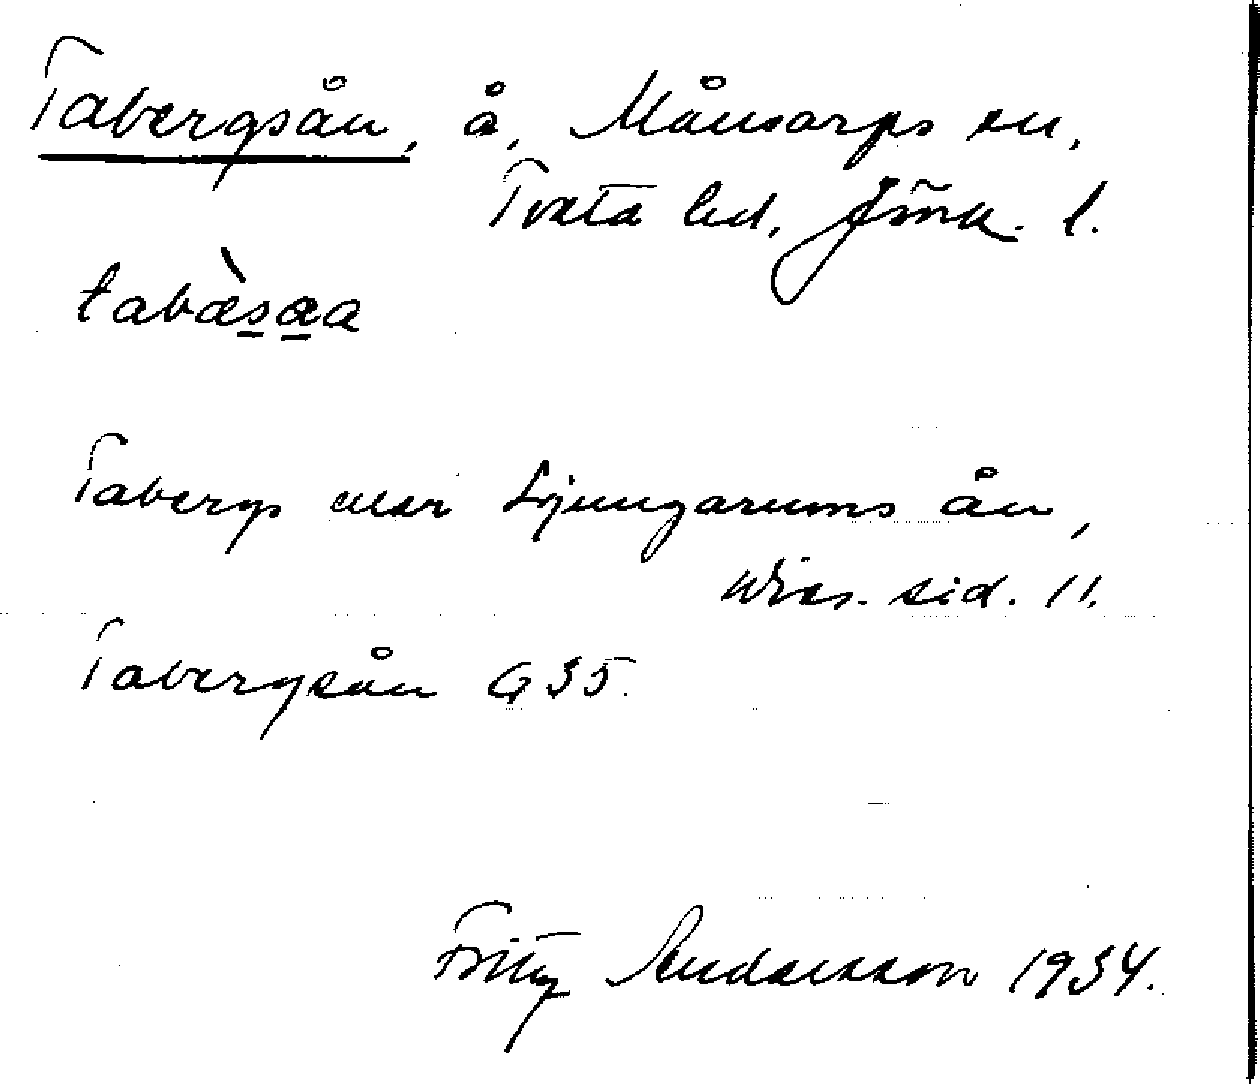 Tabergsån, å, Månsarps sn,
Tveta hd, Jönk. l.
tabæ̀sa̱a
Tabergs eller Ljungarums ån,
Wies. sid. 11.
Tabergsån G 35.
Fritz Andersson 1934.